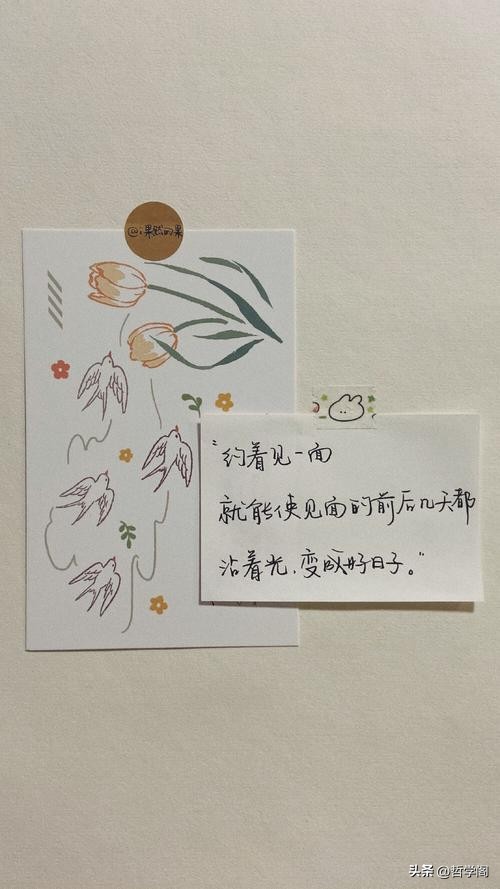 @i果然的果
"约着见一面
就能使见面的前后几天都
沾着光,变成好日子。"
头条 @哲学阁